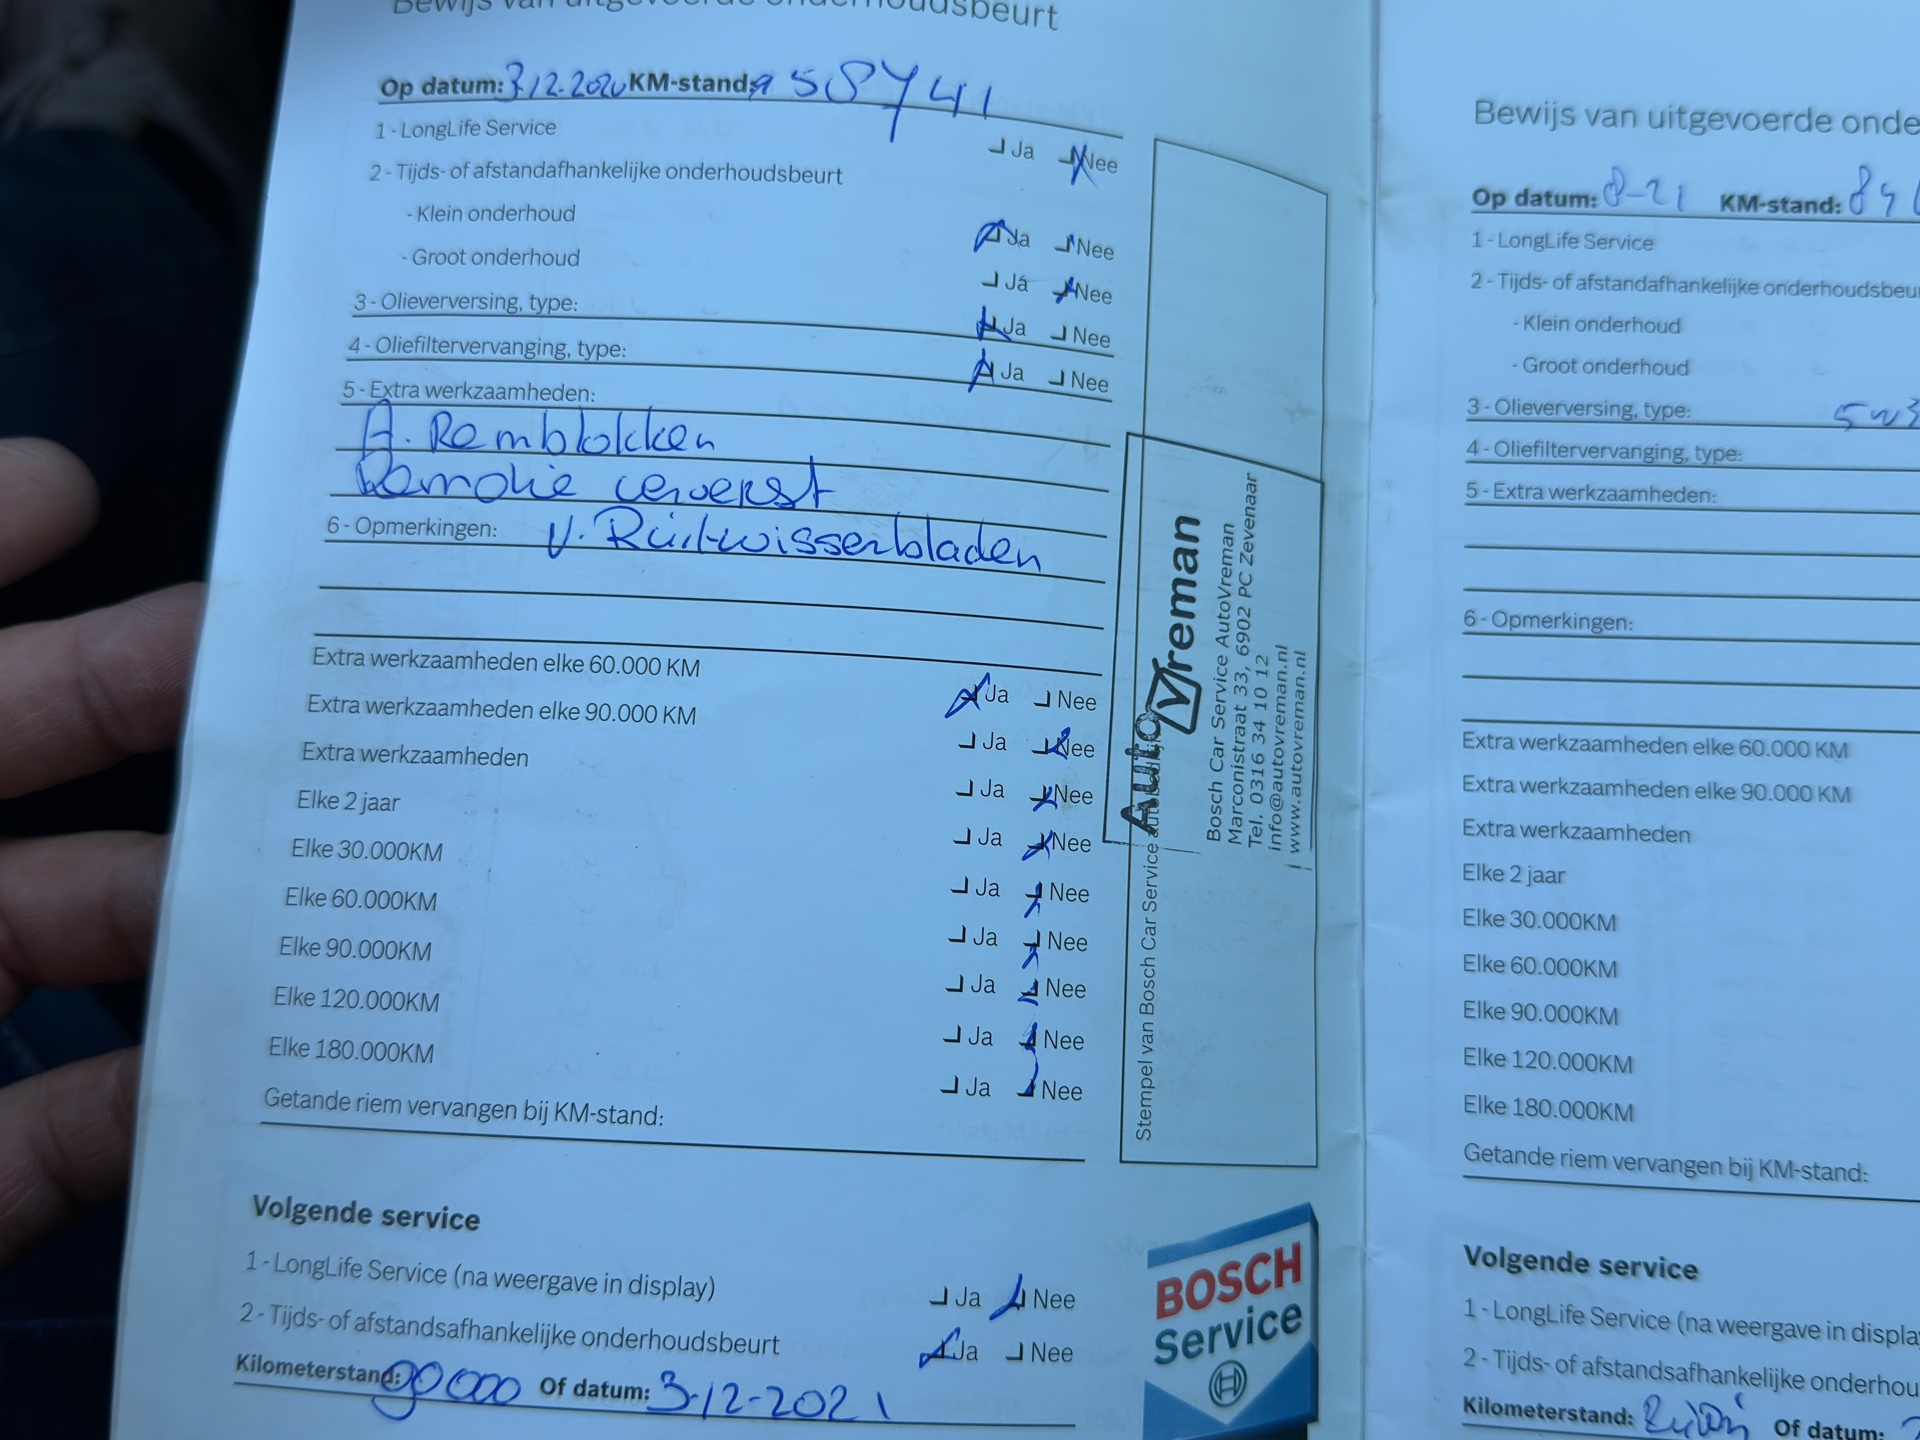 Bewijs van uitgevoerde onderhoudsbeurt
Op datum: 3/12.2020 KM-stand:
1 - LongLife Service Ja Nee
2 - Tijds- of afstandafhankelijke onderhoudsbeurt
- Klein onderhoud Ja Nee
- Groot onderhoud Ja Nee
3 - Olieverversing, type: Ja Nee
4 - Oliefiltervervanging, type: Ja Nee
5 - Extra werkzaamheden:
A. Remblokken
Remolie ververst
6 - Opmerkingen: V. Ruitwisserbladen
Extra werkzaamheden elke 60.000 KM Ja Nee
Extra werkzaamheden elke 90.000 KM Ja Nee
Extra werkzaamheden Ja Nee
Elke 2 jaar Ja Nee
Elke 30.000KM Ja Nee
Elke 60.000KM Ja Nee
Elke 90.000KM Ja Nee
Elke 120.000KM Ja Nee
Elke 180.000KM Ja Nee
Getande riem vervangen bij KM-stand:
Stempel van Bosch Car Service
Auto Vreman
Bosch Car Service AutoVreman
Marconistraat 33, 6902 PC Zevenaar
Tel. 0316 34 10 12
info@autovreman.nl
www.autovreman.nl
Volgende service
1 - LongLife Service (na weergave in display) Ja Nee
2 - Tijds- of afstandsafhankelijke onderhoudsbeurt Ja Nee
Kilometerstand: 90000 Of datum: 3-12-2021
BOSCH
Service
Bewijs van uitgevoerde onde
Op datum: 8-21 KM-stand:
1 - LongLife Service
2 - Tijds- of afstandafhankelijke onderhoudsbeu
- Klein onderhoud
- Groot onderhoud
3 - Olieverversing, type: 5w3
4 - Oliefiltervervanging, type:
5 - Extra werkzaamheden:
6 - Opmerkingen:
Extra werkzaamheden elke 60.000 KM
Extra werkzaamheden elke 90.000 KM
Extra werkzaamheden
Elke 2 jaar
Elke 30.000KM
Elke 60.000KM
Elke 90.000KM
Elke 120.000KM
Elke 180.000KM
Getande riem vervangen bij KM-stand:
Volgende service
1 - LongLife Service (na weergave in displa
2 - Tijds- of afstandsafhankelijke onderhou
Kilometerstand: Of datum: